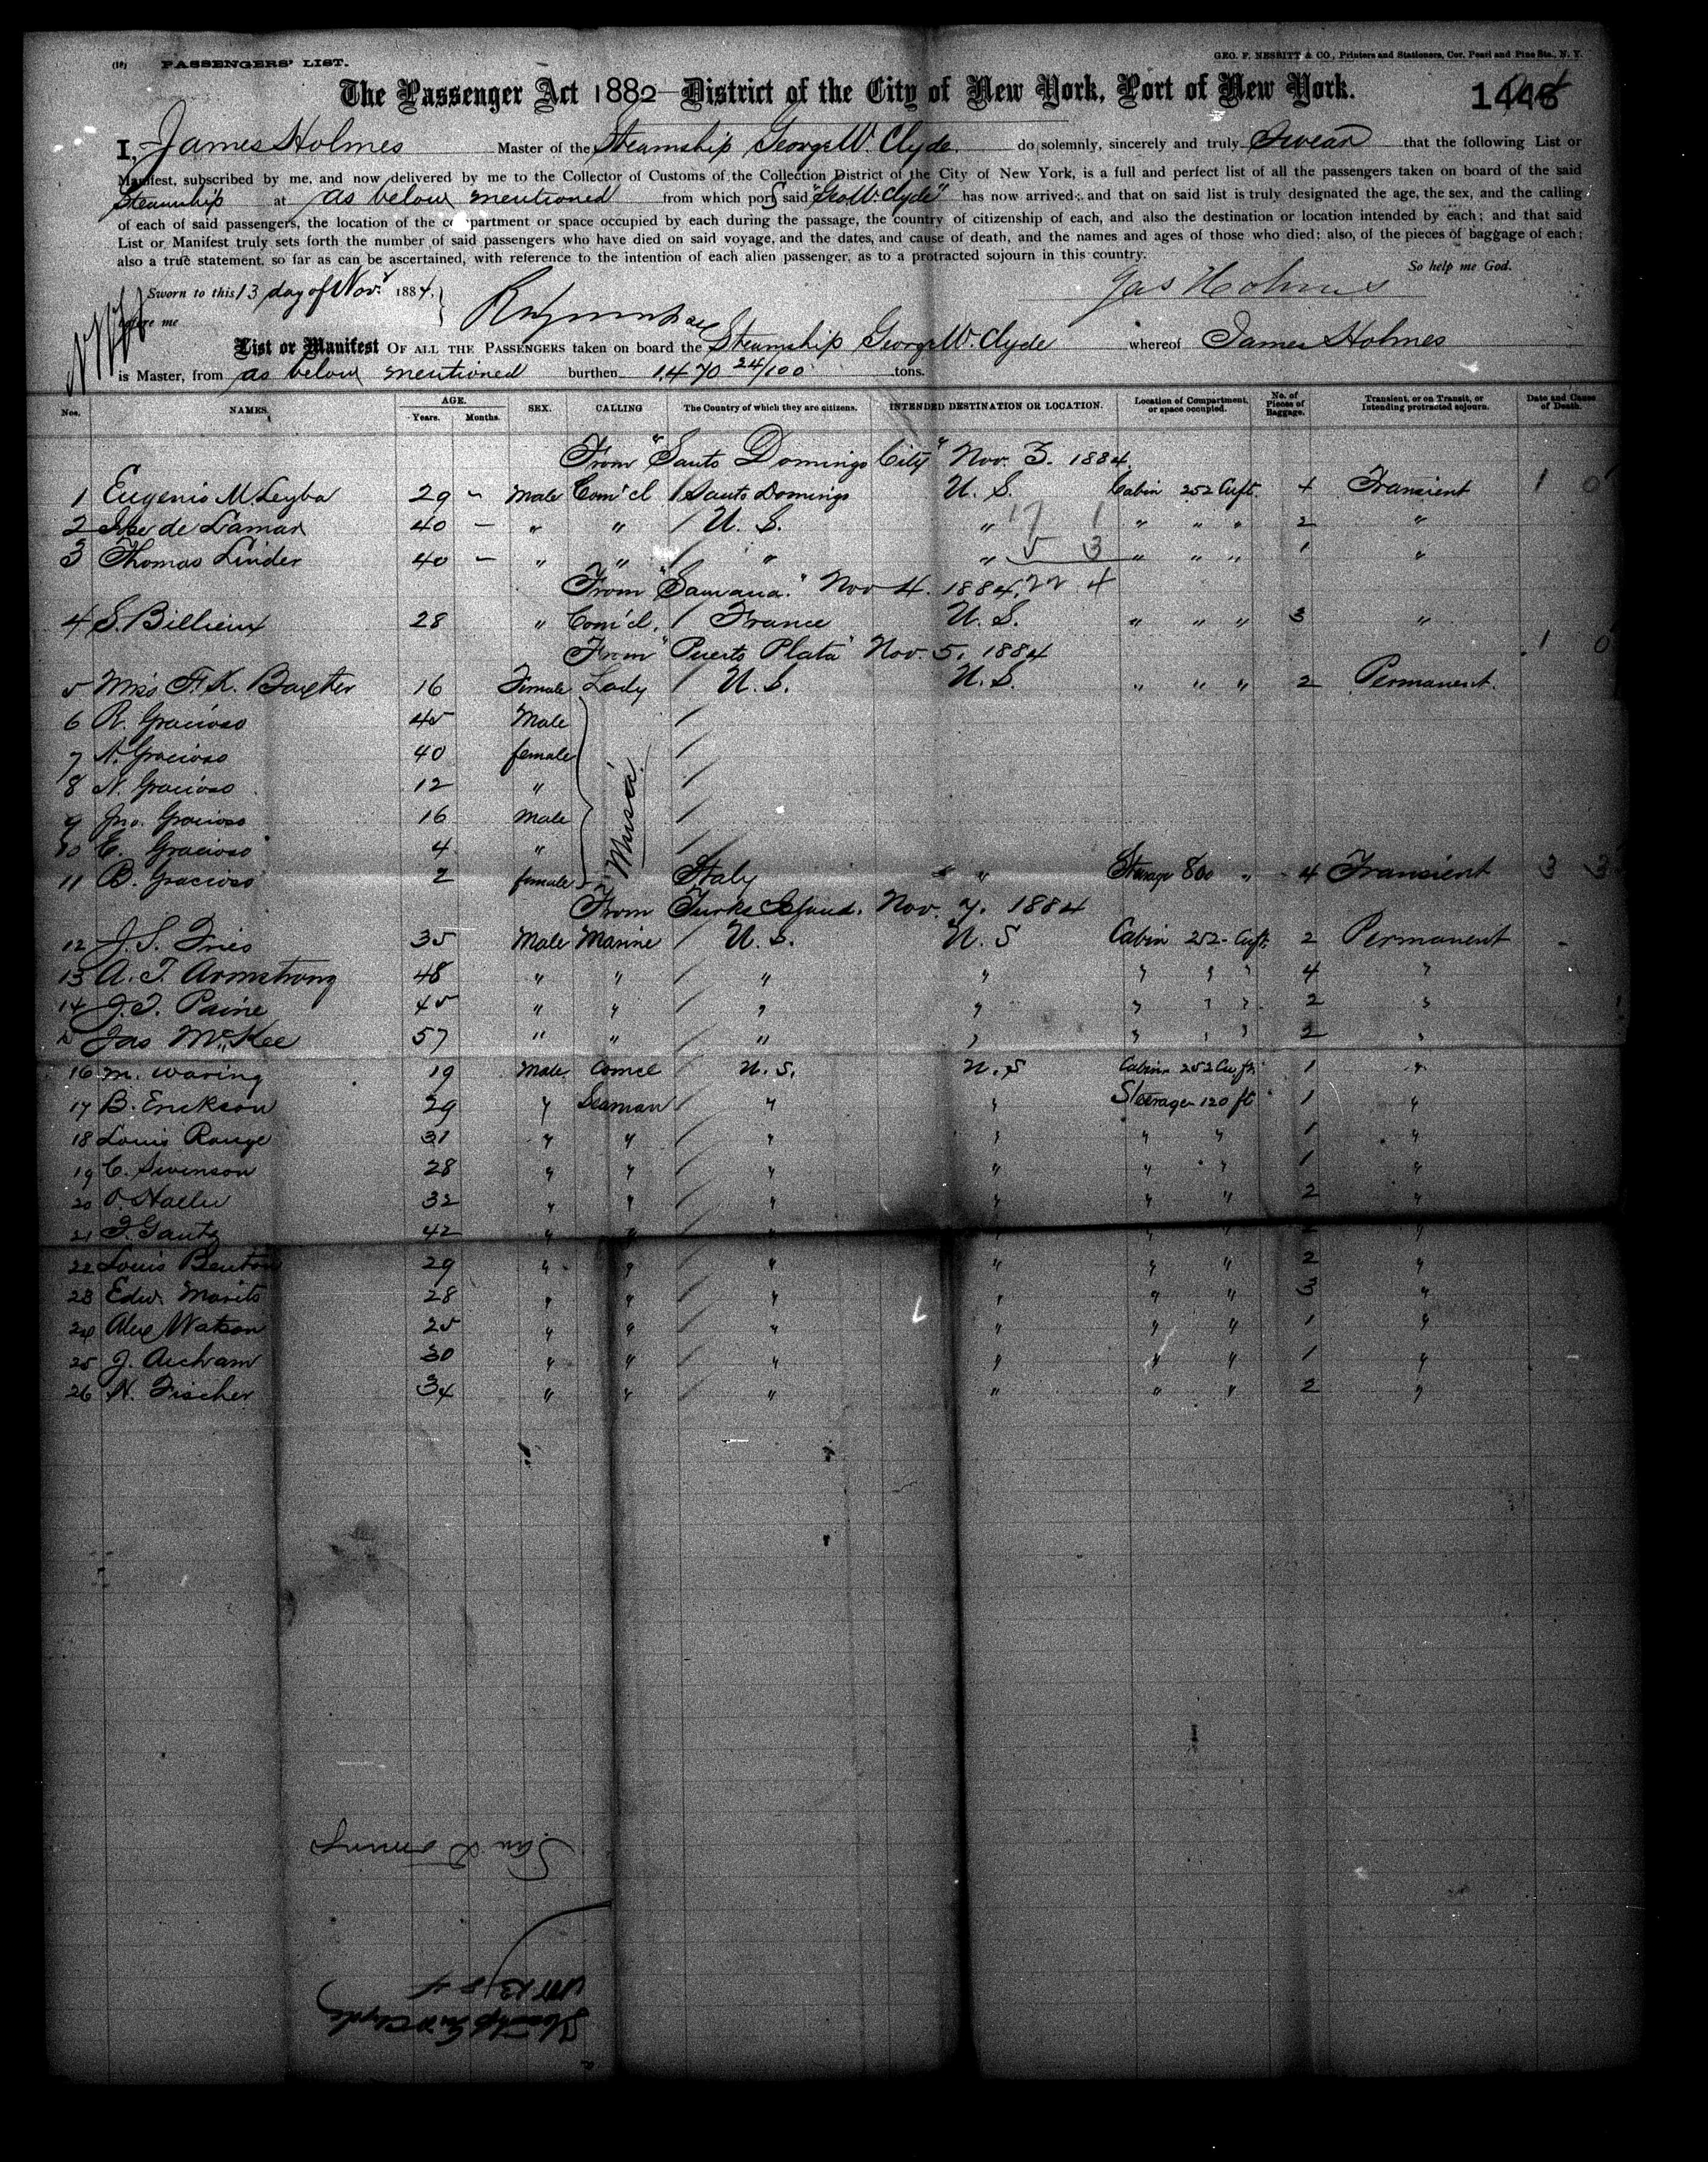 (10) PASSENGERS' LIST.
GEO. F. NESBITT & CO., Printers and Stationers, Cor. Pearl and Pine Sts., N. Y.
The Passenger Act 1882—District of the City of New York, Port of New York.
I, James Holmes Master of the Steamship George W. Clyde do solemnly, sincerely and truly Swear that the following List or
Manifest, subscribed by me, and now delivered by me to the Collector of Customs of the Collection District of the City of New York, is a full and perfect list of all the passengers taken on board of the said
Steamship at as below mentioned from which ports said "Geo W. Clyde" has now arrived; and that on said list is truly designated the age, the sex, and the calling
of each of said passengers, the location of the compartment or space occupied by each during the passage, the country of citizenship of each, and also the destination or location intended by each; and that said
List or Manifest truly sets forth the number of said passengers who have died on said voyage, and the dates, and cause of death, and the names and ages of those who died; also, of the pieces of baggage of each;
also a true statement, so far as can be ascertained, with reference to the intention of each alien passenger, as to a protracted sojourn in this country.
So help me God.
Sworn to this 13 day of Novr 1884,
before me
Jas Holmes
List or Manifest OF ALL THE PASSENGERS taken on board the Steamship George W. Clyde whereof James Holmes
is Master, from as below mentioned burthen 1,470 24/100 tons.
Nos. NAMES. AGE. Years. Months. SEX. CALLING The Country of which they are citizens. INTENDED DESTINATION OR LOCATION. Location of Compartment or space occupied. No. of Pieces of Baggage. Transient, or on Transit, or Intending protracted sojourn. Date and Cause of Death.
From "Santo Domingo City" Nov. 3. 1884
1 Eugenio M. Leyba 29 – Male Com'cl / Santo Domingo U. S. Cabin 252 Cuft. 4 Transient 1 0
2 de Lamar 40 – " " / U. S. " 17 1 " " " 2 "
3 Thomas Linder 40 – " " / " " 5 3 " " " 1 "
From "Samana." Nov 4. 1884. 22 4
4 S. Billieux 28 " Com'cl. / France U. S. " " " 3 "
From "Puerto Plata" Nov. 5. 1884 1 0
5 Miss F. K. Baxter 16 Female Lady / U. S. U. S. " " " 2 Permanent.
6 R. Gracioso 45 Male /
7 A. Gracioso 40 female /
8 N. Gracioso 12 " /
9 Jno. Gracioso 16 Male /
10 E. Gracioso 4 " /
11 B. Gracioso 2 female Italy " Steerage 800 " 4 Transient 3 3
From Turks Island. Nov. 7. 1884
12 J. S. Fries 35 Male Marine / U. S. U. S Cabin 252 Cuft. 2 Permanent
13 A. T. Armstrong 48 " " / " " " " " 4 "
14 J. T. Paine 45 " " / " " " " " 2 "
15 Jas McKee 57 " " / " " " " " 2 "
16 M. Waring 19 Male Comcl U. S. U. S Cabin 252 Cu. ft. 1 "
17 B. Erickson 29 " Seaman / " " Steerage 120 ft 1 "
18 Louis Range 31 " " / " " " " 1 "
19 C. Swenson 28 " " / " " " " 1 "
20 32 " " / " " " " 2 "
21 Gautz 42 " " / " " " " 2 "
22 Louis Benton 29 " " / " " " " 2 "
23 Edw. 28 " " / " " " " 3 "
24 Alex Watson 25 " " / " " " " 1 "
25 J. 30 " " / " " " " 1 "
26 N. Fischer 34 " " / " " " " 2 "